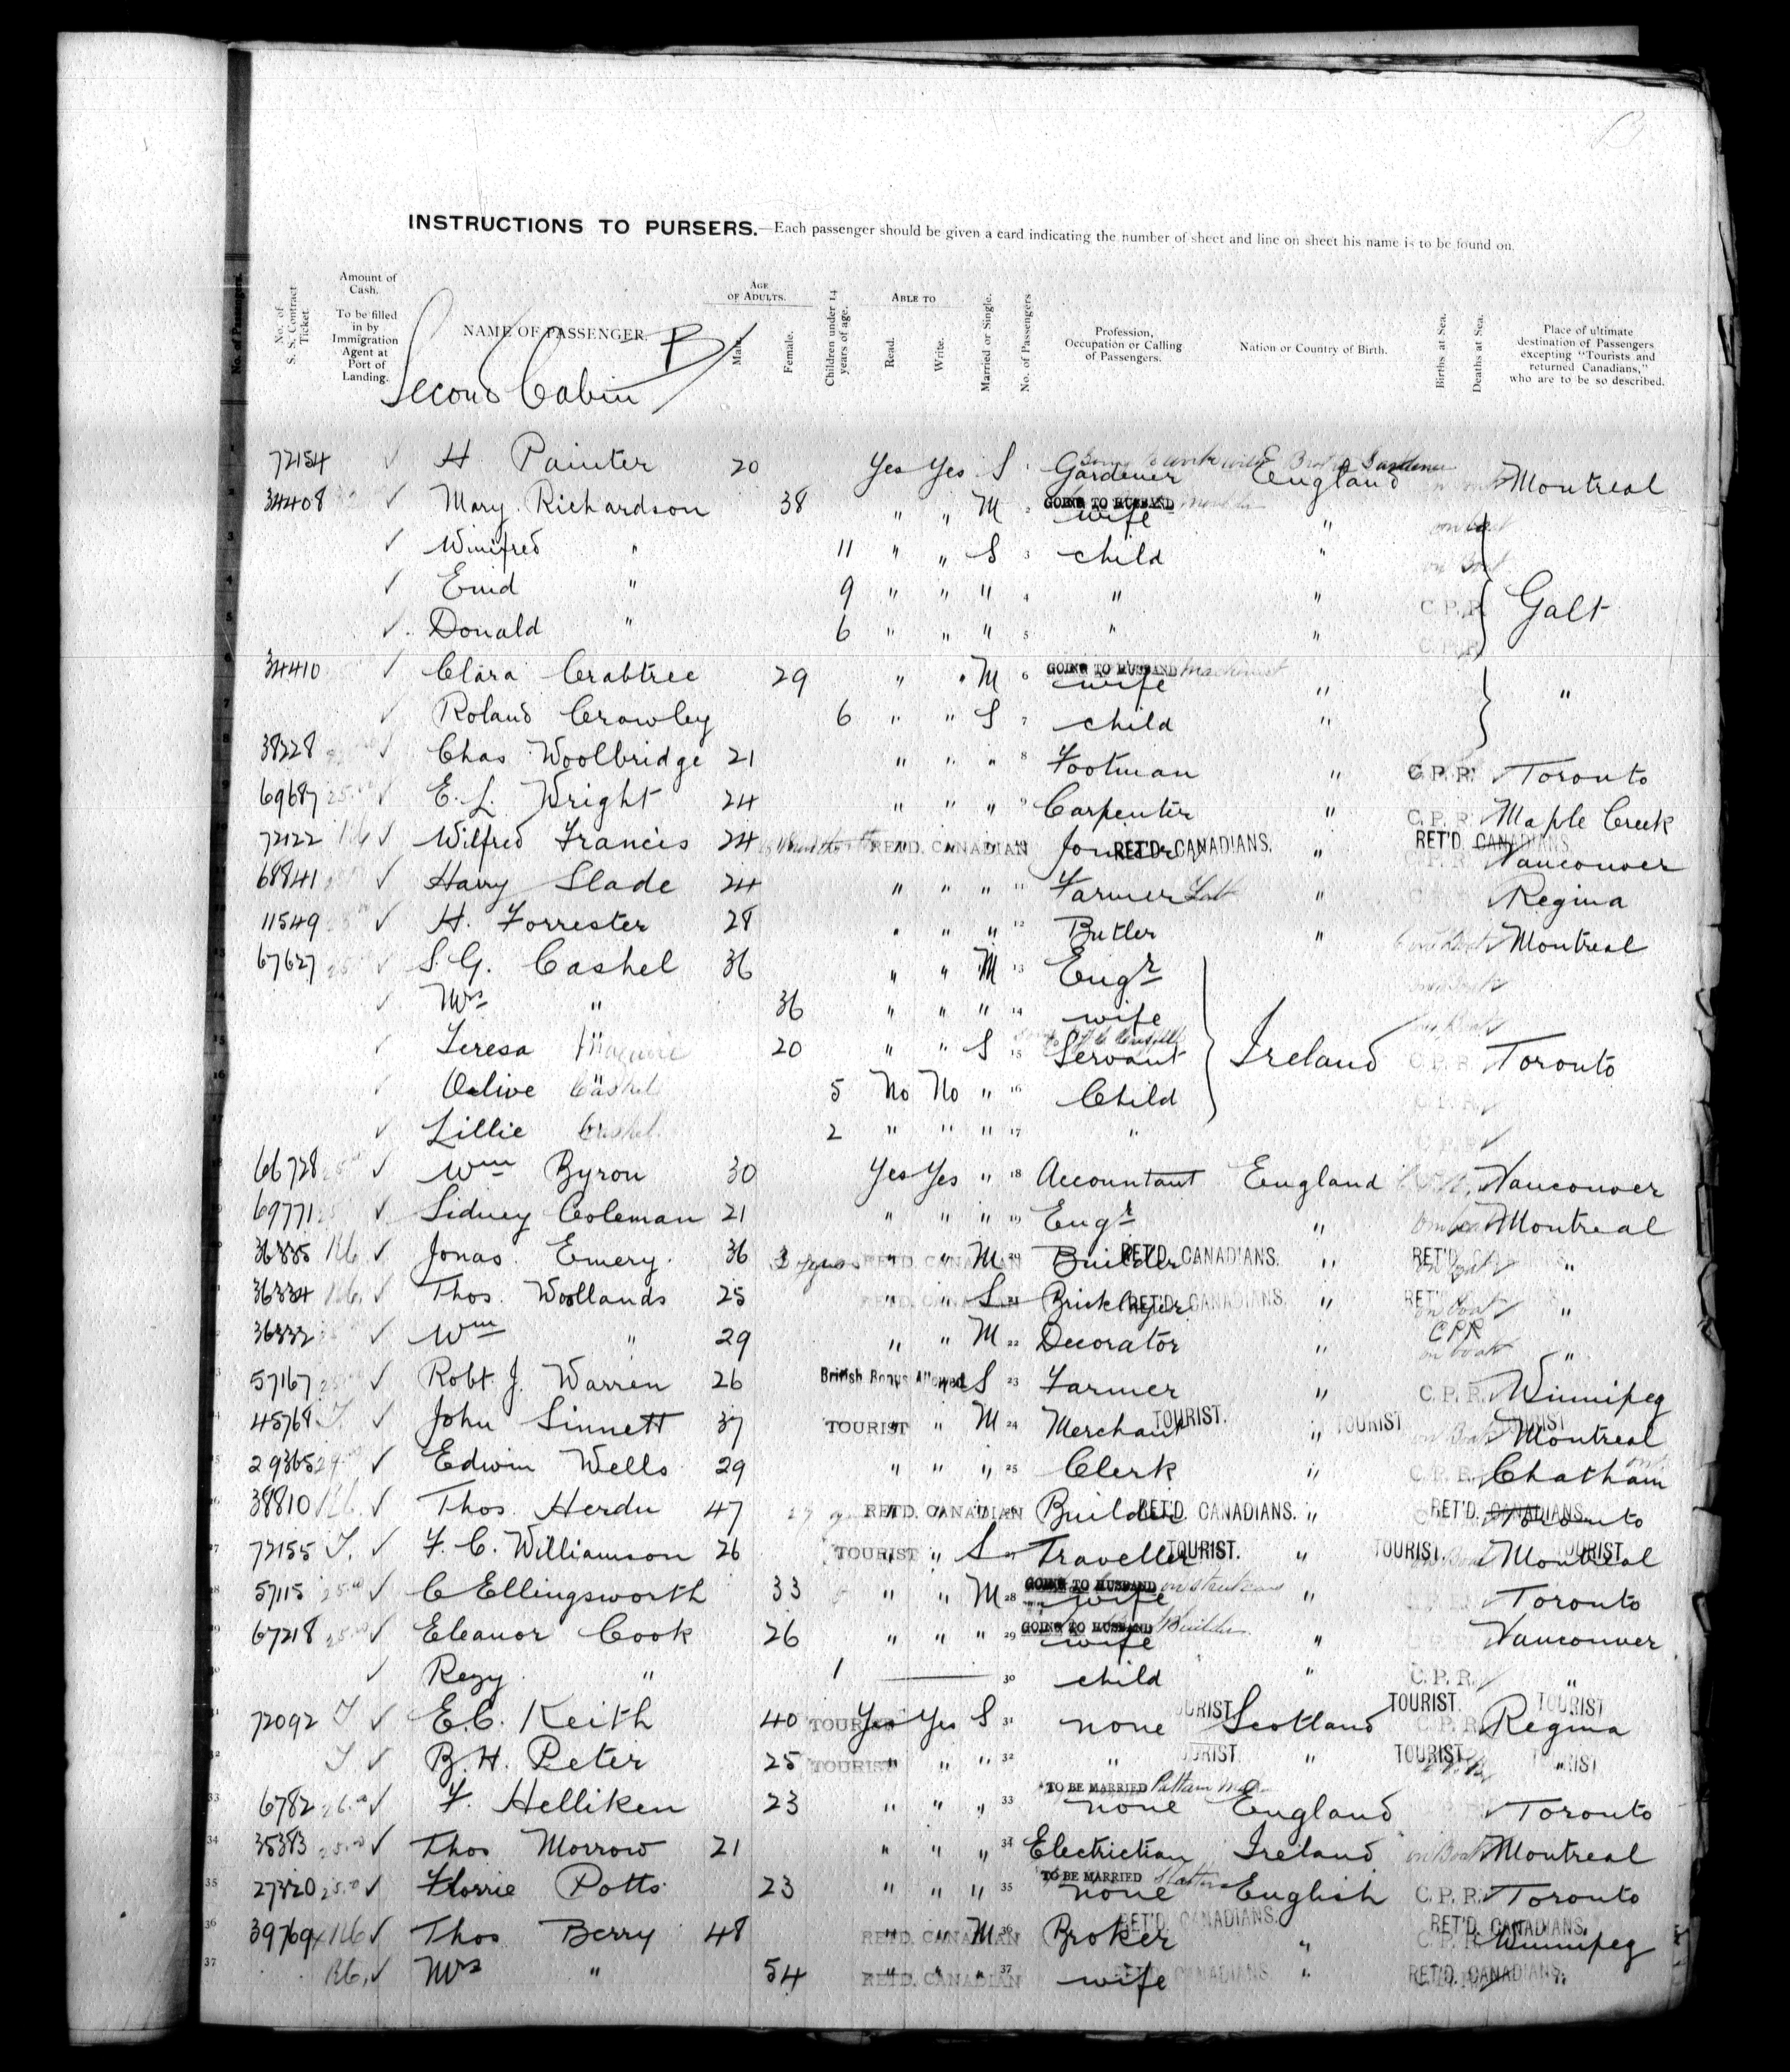 INSTRUCTIONS TO PURSERS.—Each passenger should be given a card indicating the number of sheet and line on sheet his name is to be found on.
No. of Passengers. No. of S. S. Contract Ticket. Amount of Cash. To be filled in by Immigration Agent at Port of Landing. NAME OF PASSENGER. AGE OF ADULTS. Male. Female. Children under 14 years of age. ABLE TO Read. Write. Married or Single. No. of Passengers Profession, Occupation or Calling of Passengers. Nation or Country of Birth. Births at Sea. Deaths at Sea. Place of ultimate destination of Passengers excepting "Tourists and returned Canadians," who are to be so described.
Second Cabin B/
72154 ✓ H Painter 20 Yes Yes S 1 Gardener England Montreal
34408 ✓ Mary Richardson 38 " " M 2 GOING TO HUSBAND wife "
✓ Winifred " 11 " " S 3 child " on boat
✓ Enid " 9 " " " 4 " " C. P. R. Galt
✓ Donald " 6 " " " 5 " " C. P. R.
34410 ✓ Clara Crabtree 29 " " M 6 GOING TO HUSBAND machinist wife " "
✓ Roland Crowley 6 " " S 7 child "
38228 ✓ Chas Woolbridge 21 " " " 8 Footman " C. P. R. Toronto
69687 25.00 ✓ E. L. Wright 24 " " " 9 Carpenter " C. P. R. Maple Creek
72122 ✓ Wilfred Francis 24 RET'D. CANADIAN " " " Joiner RET'D. CANADIANS. " RET'D. CANADIANS. Vancouver
68841 ✓ Harry Slade 24 " " " 11 Farmer Lab " Regina
11549 ✓ H. Forrester 28 " " " 12 Butler " Montreal
67627 ✓ S. G. Cashel 36 " " M 13 Engr
✓ Mrs " 36 " " " 14 wife
✓ Teresa " Maguire 20 " " S 15 Servant Ireland C. P. R. Toronto
✓ Olive " Cashel 5 No No " 16 Child C. P. R.
✓ Lillie Cashel 2 " " " 17 " C. P. R.
66728 ✓ Wm Byron 30 Yes Yes " 18 Accountant England Vancouver
69771 ✓ Sidney Coleman 21 " " " 19 Engr " on boat Montreal
36335 ✓ Jonas Emery. 36 3 years RET'D. CANADIAN " " M 20 Builder RET'D. CANADIANS. " RET'D. on boat "
36334 ✓ Thos. Woollands 25 RET'D. CANADIAN " " S 21 Bricklayer RET'D. CANADIANS. " RET'D. on boat "
36332 ✓ Wm " 29 " " M 22 Decorator " CPR on boat "
57167 25.00 ✓ Robt. J. Warren 26 British Bonus Allowed S 23 Farmer " C. P. R. Winnipeg
45768 T. ✓ John Sinnett 37 TOURIST " " M 24 Merchant TOURIST. " TOURIST TOURIST Montreal
29365 29 ✓ Edwin Wells 29 " " " 25 Clerk " C. P. R. Chatham ont.
38810 ✓ Thos. Herdu 47 RET'D. CANADIAN " " " Builder RET'D. CANADIANS. " RET'D. CANADIANS. Toronto
72155 T. ✓ F. C. Williamson 26 TOURIST " " S Traveller TOURIST. " TOURIST. TOURIST. Montreal
57115 25.00 ✓ C Ellingsworth 33 " " M 28 GOING TO HUSBAND wife " Toronto
67218 25.00 ✓ Eleanor Cook 26 " " " 29 GOING TO HUSBAND Builder wife " Vancouver
✓ Regy " 1 30 child " C. P. R. "
72092 T ✓ E. C. Keith 40 TOURIST Yes Yes S 31 none TOURIST Scotland TOURIST. TOURIST C. P. R. Regina
T ✓ B. H. Peter 25 TOURIST " " " 32 " TOURIST. " TOURIST TOURIST "
6782 26.00 ✓ F. Helliken 23 " " " 33 TO BE MARRIED none England Toronto
34 35383 25.00 ✓ Thos Morrow 21 " " " 34 Electrician Ireland on Boat Montreal
35 27320 25.00 ✓ Florrie Potts 23 " " " 35 TO BE MARRIED none English C. P. R. Toronto
36 39769 ✓ Thos Berry 48 RET'D. CANADIAN " " M 36 Broker RET'D. CANADIANS. " RET'D. CANADIANS. C. P. R. Winnipeg
37 ✓ Mrs " 54 RET'D. CANADIAN " " " 37 wife RET'D. CANADIANS. " RET'D. CANADIANS. "